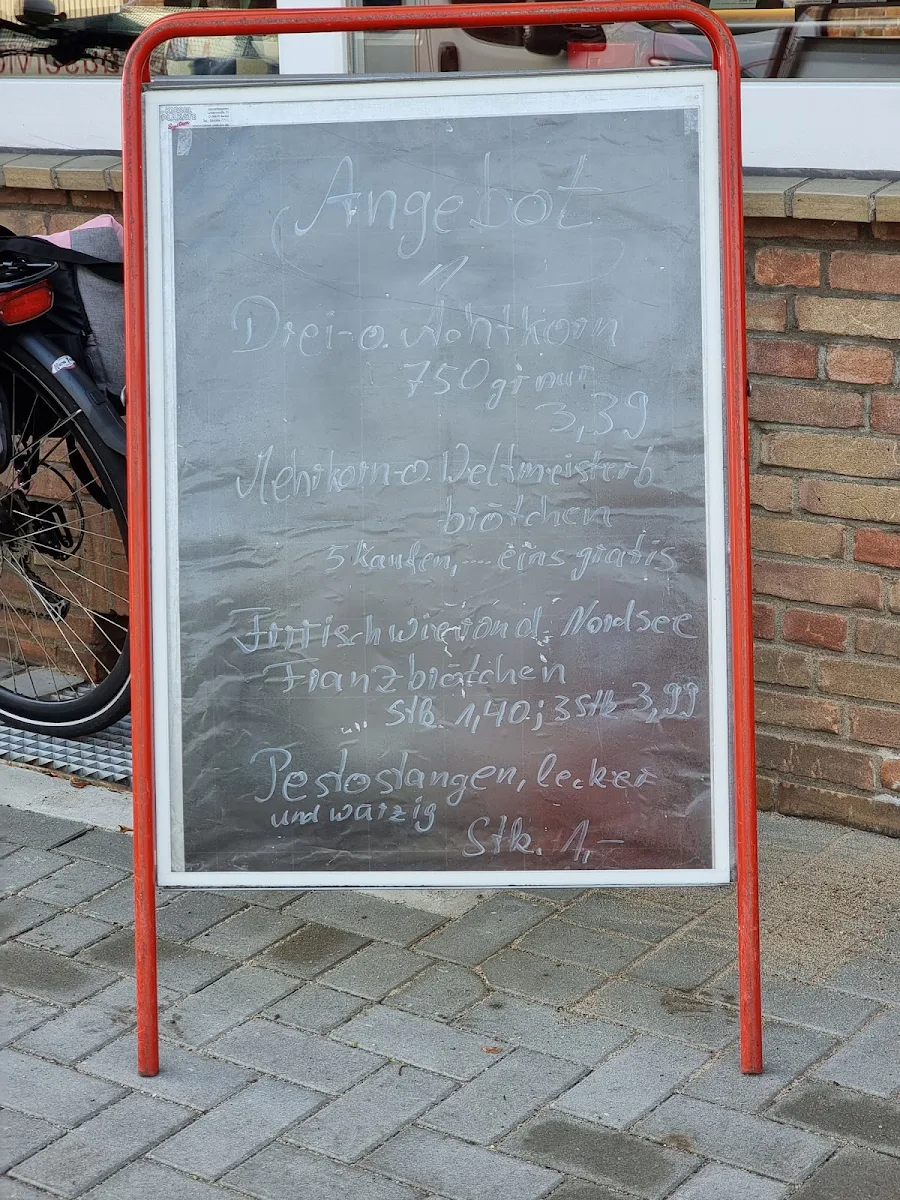 Angebot
Drei- o. Achtkorn
750 gr nur
3,39
Mehrkorn- o. Weltmeisterb
brötchen
5 kaufen,.... eins gratis
Nordsee
Franzbrötchen
Stk. 1,40; 3 Stk 3,99
Pestostangen, lecker
und würzig
Stk. 1,-